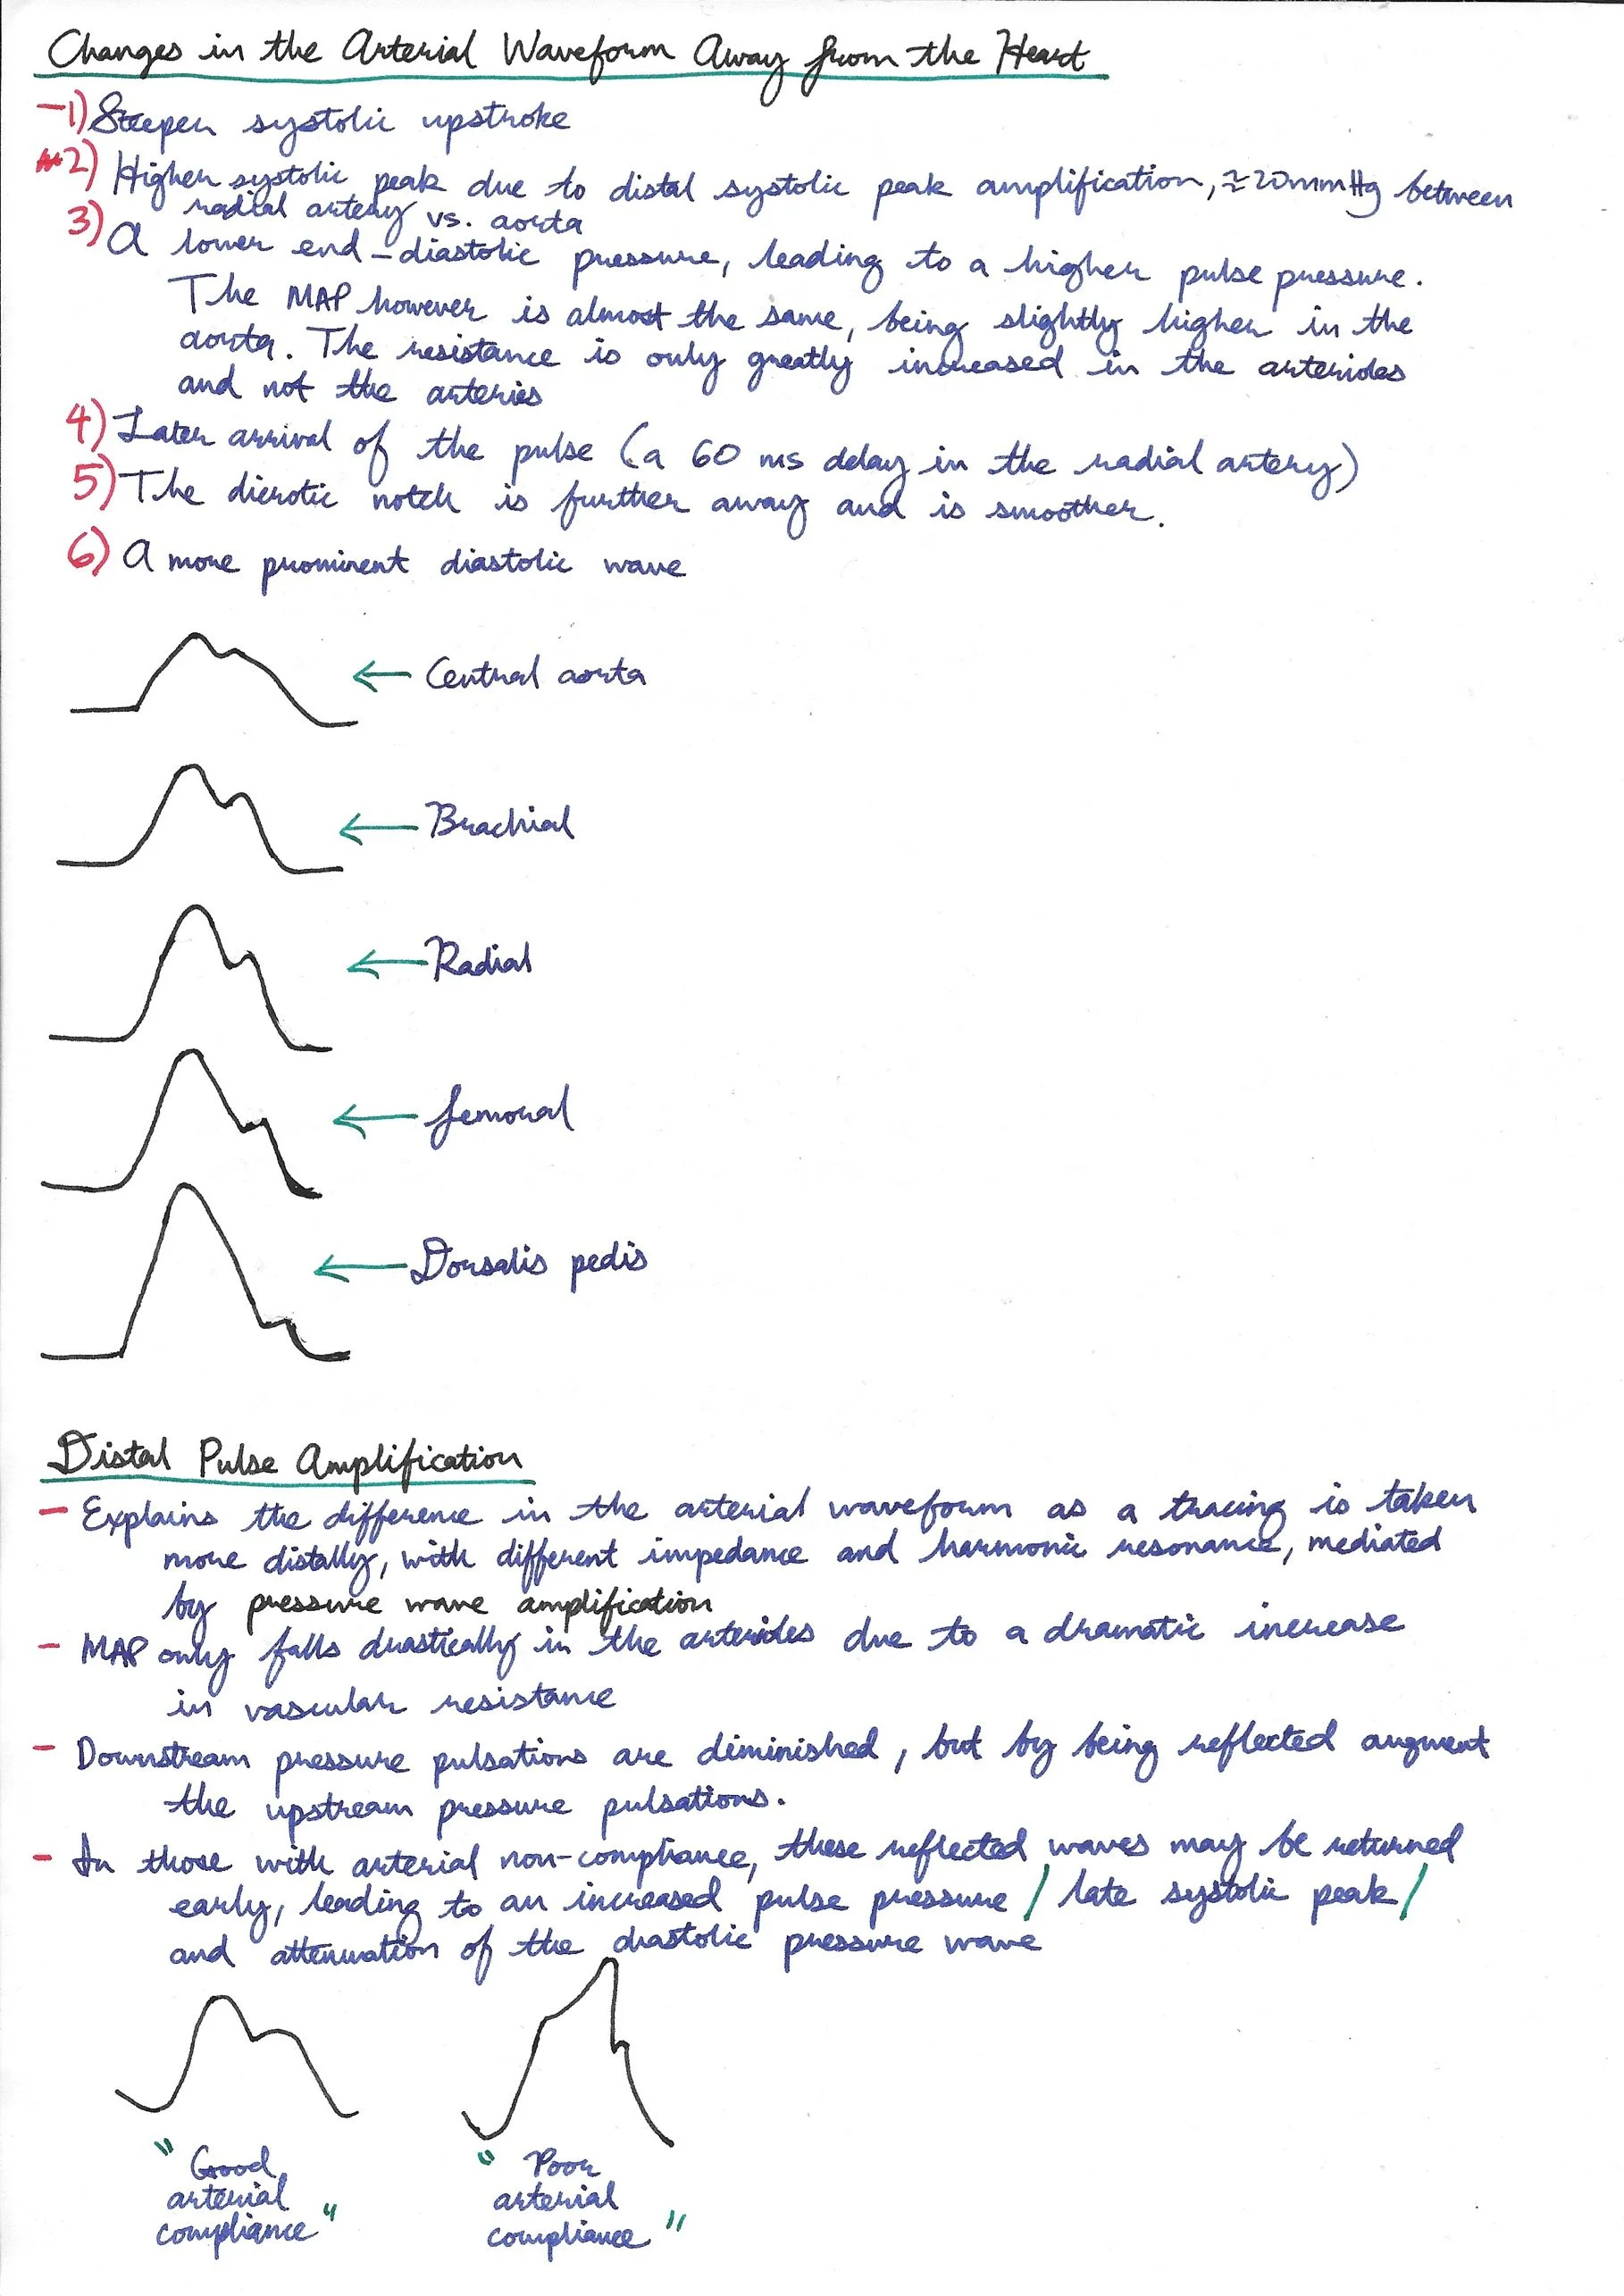 Changes in the Arterial Waveform Away from the Heart
-1) Steeper systolic upstroke
2) Higher systolic peak due to distal systolic peak amplification, ≈20mmHg between
radial artery vs. aorta
3) A lower end-diastolic pressure, leading to a higher pulse pressure.
The MAP however is almost the same, being slightly higher in the
aorta. The resistance is only greatly increased in the arterioles
and not the arteries
4) Later arrival of the pulse (a 60 ms delay in the radial artery)
5) The dicrotic notch is further away and is smoother.
6) A more prominent diastolic wave
← Central aorta
← Brachial
← Radial
← femoral
← Dorsalis pedis
Distal Pulse Amplification
- Explains the difference in the arterial waveform as a tracing is taken
more distally, with different impedance and harmonic resonance, mediated
by pressure wave amplification
- MAP only falls drastically in the arterioles due to a dramatic increase
in vascular resistance
- Downstream pressure pulsations are diminished, but by being reflected augment
the upstream pressure pulsations.
- In those with arterial non-compliance, these reflected waves may be returned
early, leading to an increased pulse pressure / late systolic peak /
and attenuation of the diastolic pressure wave
"Good
arterial
compliance"
"Poor
arterial
compliance"